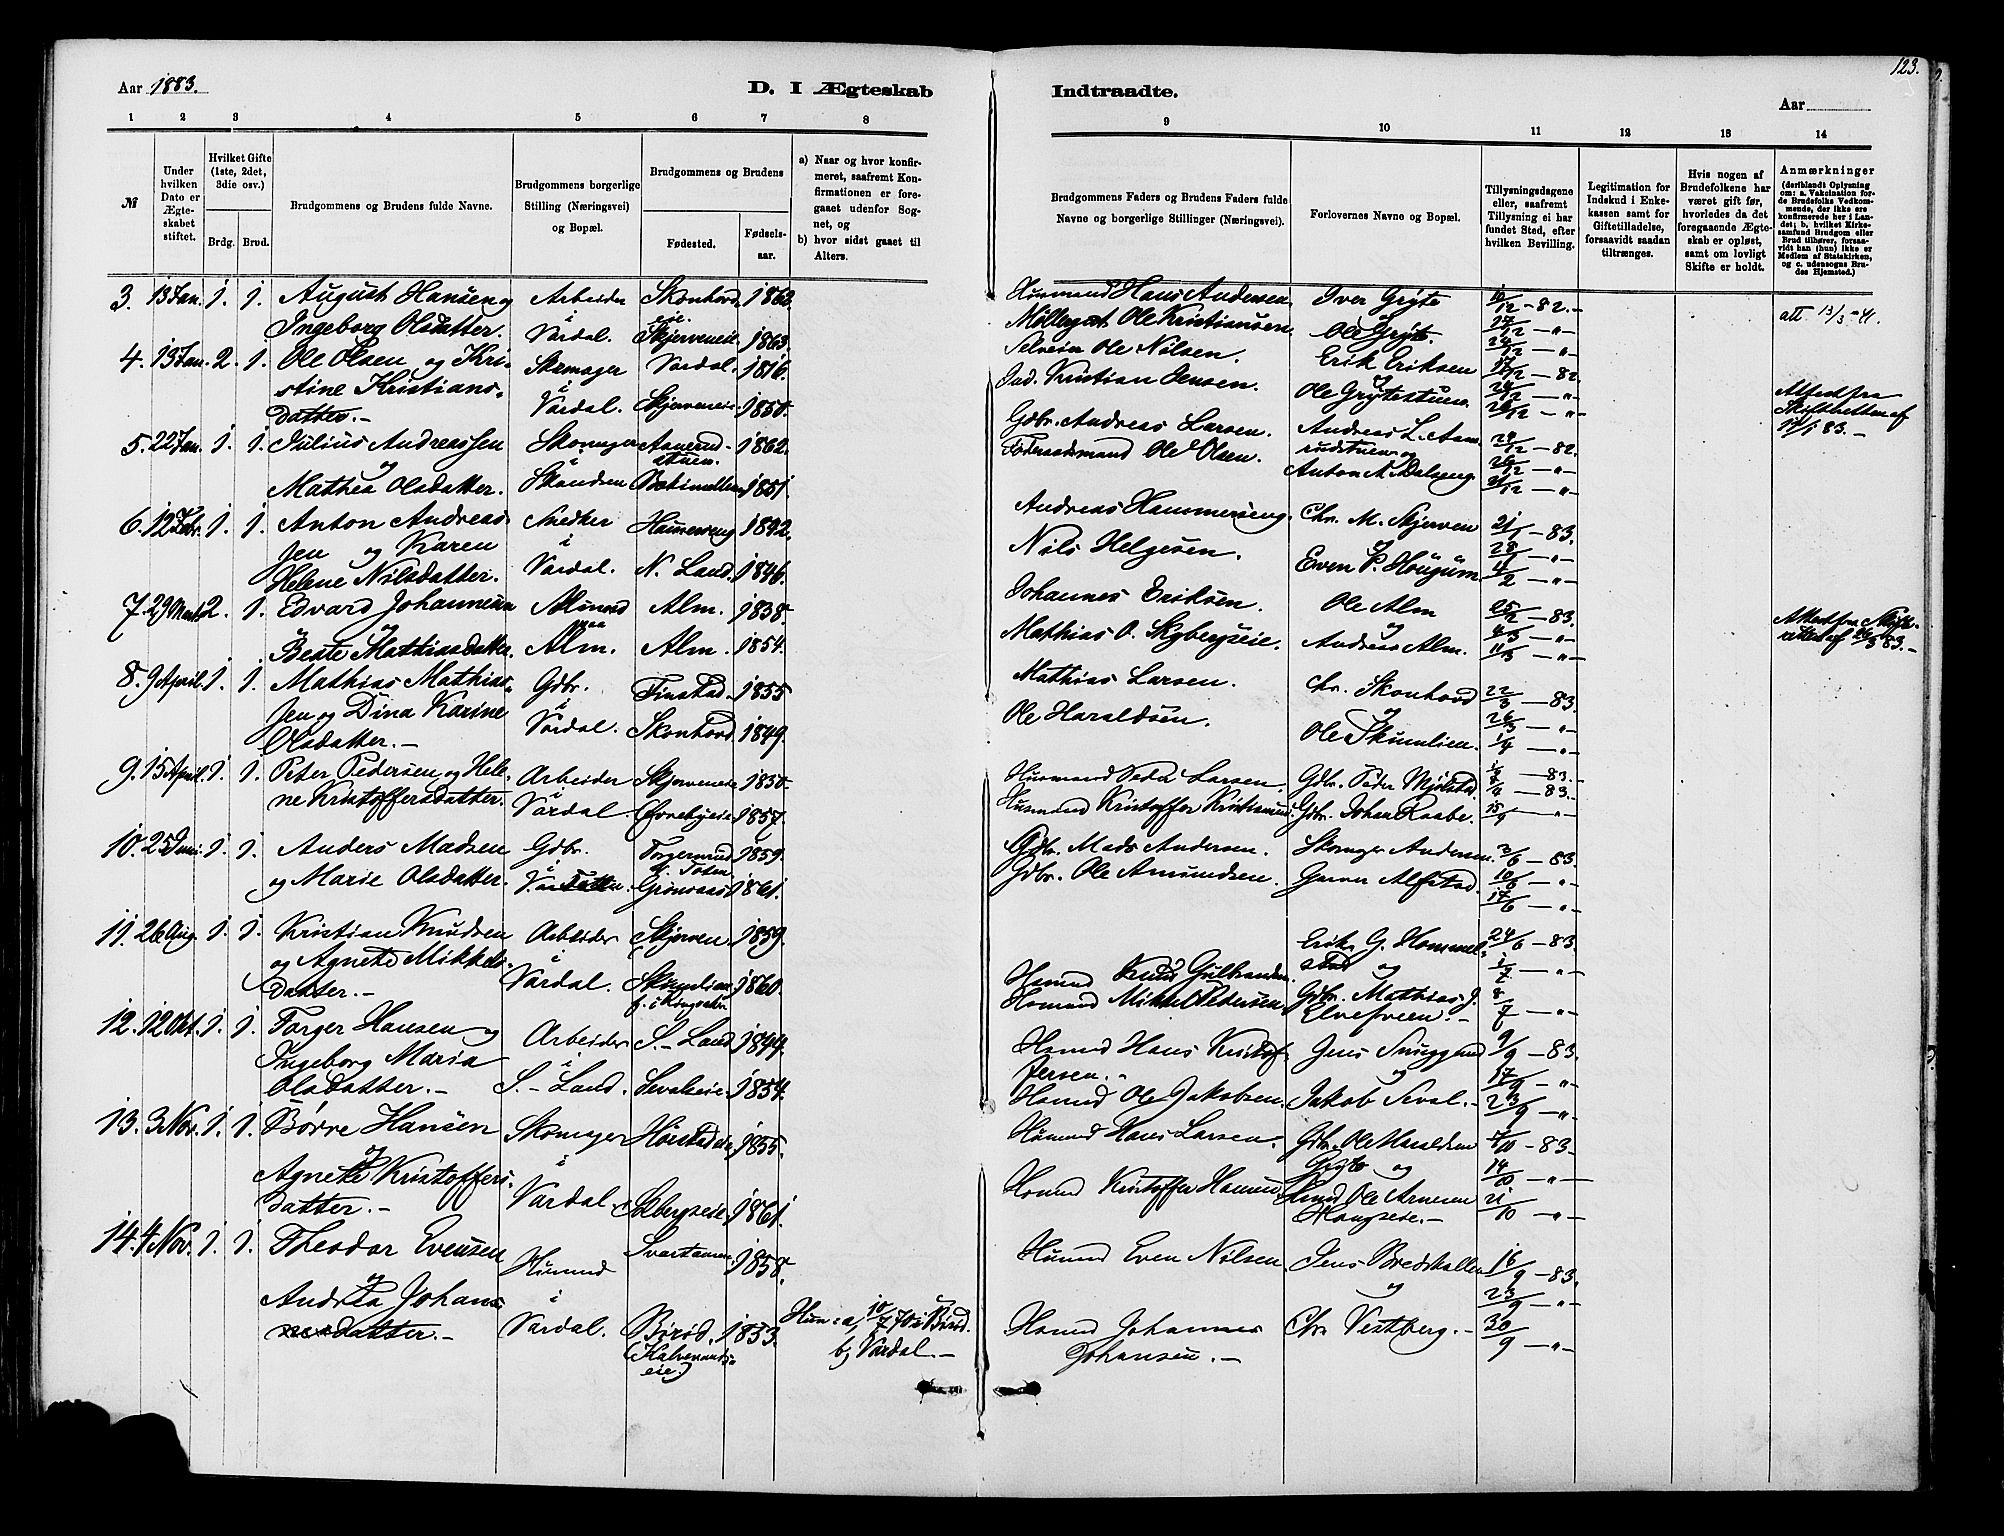 123.
Aar 1883.
D. I Ægteskab
Indtraadte.
Aar
1 2 3 4 5 6 7 8 9 10 11 12 13 14
№
Under hvilken Dato er Ægteskabet stiftet.
Hvilket Gifte (1ste, 2det, 3die osv.)
Brdg. Brud.
Brudgommens og Brudens fulde Navne.
Brudgommens borgerlige Stilling (Næringsvei) og Bopæl.
Brudgommens og Brudens
Fødested.
Fødselsaar.
a) Naar og hvor konfirmeret, saafremt Konfirmationen er foregaaet udenfor Sognet, og
b) hvor sidst gaaet til Alters.
Brudgommens Faders og Brudens Faders fulde Navne og borgerlige Stillinger (Næringsvei).
Forlovernes Navne og Bopæl.
Tillysningsdagene eller, saafremt Tillysning ei har fundet Sted, efter hvilken Bevilling.
Legitimation for Indskud i Enkekassen samt for Giftetilladelse, forsaavidt saadan tiltrænges.
Hvis nogen af Brudefolkene har været gift før, hvorledes da det foregaaende Ægteskab er opløst, samt om lovligt Skifte er holdt.
Anmærkninger
(deriblandt Oplysning om: a. Vakcination forde Brudefolks Vedkommende, der ikke ere konfirmerede her i Landet; b, hvilket Kirkesamfund Brudgom eller Brud tilhører, forsaavidt han (hun) ikke er Medlem af Statskirken, og c. udensogns Brudes Hjemsted.)
3. 13 Jan. 1. 1. August Hansen og Arbeider Skonhovd 1862. Husmand Hans Andersen. Iver Gryte 10/12 - 82.
Ingeborg Olsdatter. i Vardal. eie. Skjerveneie 1863. Ole Kristiansen. Ole Gryte. 17/12 - " -
24/12 - " -
4. 13 Jan. 2. 1. Ole Olsen og Kri- Skomager Vardal. 1816. Selveier Ole Nilsen. Erik Eriksen 17/12 - 82.
stine Kristians- i Ind. Kristian Jensen. og 24/12 - " -
datter. - Vardal. Skjerveneie. 1850. Ole Grytestuen.
Attest fra Skifteretten af 83. -
5. 22 Jan. 1. 1. Julius Andreassen Skomager Aamrud- 1862. Gdbr. Andreas Larsen. Andreas L. Aam- 24/12 - 82.
og i stuen. Føderaadsmand Ole Olsen. rudstuen og 26/12 - " -
Mathea Olsdatter. 1851. Anton 31/12 - " -
6. 12 Febr. 1. 1. Anton Andreas- Snedker 1842. Andreas Hammerseng. Chr. M. Skjerven 21/1 - 83.
sen og Karen i Nils Helgesen. og 28/1 - " -
Helene Nilsdatter. Vardal. N. Land. 1846. Even P. Hougum 4/2 - " -
7. 29 Marts 2. 1. Edvard Johannesen Alm. 1838. Johannes Eriksen. Ole Alm 25/2 - 83.
og paa og 4/3 - " -
Beate Mathiasdatter. Alm. Alm. 1854. Mathias O. Skybergseie. Andreas Alm. 11/3 - " -
8. 9 April. 1. 1. Mathias Mathias- Gdbr. Finstad. 1855 Mathias Larsen. Chr. Skonhovd 22/3 - 83.
sen og Dina Karine i og 26/3 - " -
Olsdatter. - Vardal. Skonhovd. 1849. Ole Haraldsen. Ole Skumlien. 1/4 - " -
9. 15 April. 1. 1. Peter Pedersen og Hele- Arbeider Skjerveneie 1830. Husmand Peder Larsen. Gdbr. Peder Mjølstad - 83.
ne Kristoffersdatter. i Vardal. 1857. Husmand Kristoffer Kristiansen Gdbr. Johan Raabe. - " -
10. 25 Juni. 1. 1. Anders Madsen Gdbr. 1859. Gdbr. Mads Andersen. Skomager Andersen 3/6 - 83.
og Marie Olsdatter. i V. Toten. 1861. Gdbr. Ole Amundsen. Garver Alfstad. 10/6 - " -
17/6 - " -
11. 26 Aug. 1. 1. Kristian Knudsen Arbeider Skjerven. 1859. Husmd Knud Gulbrandsen Erik G. Hommel- 24/6 - 83.
og Agnete Mikkels- i Skumlien 1860. stad og 1/7 - " -
datter. - Vardal. Husmand Mikkel Pedersen. Gdbr. Mathias J. Elvesveen. - 8/7 - " -
12. 12 Okt. 1. 1. Torger Hansen og Arbeider S. - Land 1844. Husmd Hans Kristof- Jens Snugglund 9/9 - 83.
Ingeborg Maria i fersen. og 17/9 - " -
Olsdatter. - S. - Land. Sevaleeie. 1854. Husmd Ole Jakobsen. Jakob Seval. - 23/9 - " -
13. 3 Nov. 1. 1. Børre Hansen Skomager 1855. Husmd Hans Larsen. Gdbr. Ole Haraldsen 7/10 - 83.
og i Gryte og 14/10 - " -
Agnete Kristoffers- Husmd Kristoffer Hansen Husmd Ole Arnesen 21/10 - " -
datter. - Vardal. Solbergseie. 1861. Haugseie. -
14. 4 Nov. 1. 1. Theodor Evensen Husmd 1858. Husmd Even Nilsen. Jens Bredskallen 16/9 - 83.
og i og 23/9 - " -
Andrea Johans- Vardal. Børød. 1853. Hun: a, 10/7 70 i Børød. Husmd Johannes Chr. Vestberg. - 30/9 - " -
datter. - b, Vardal. - Johansen. -